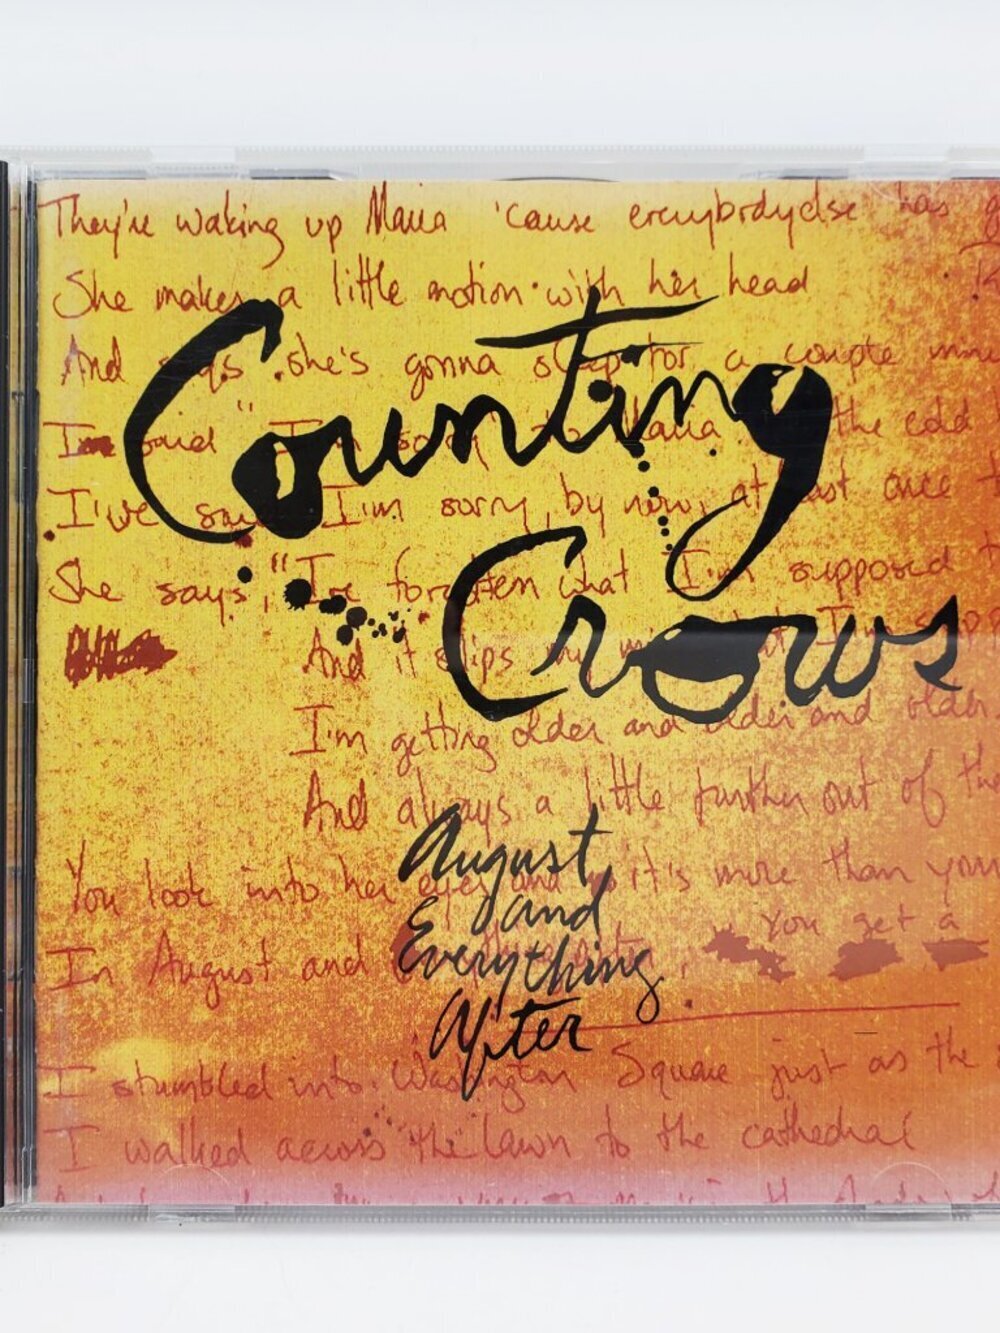 They're waking up Maria 'cause everybodyelse has
She makes a little motion with her head
And says she's gonna sleep for a couple
Counting
I said "I'm sorry" to Maria the cold
I've said I'm sorry, by now, at last once
Crows
She says, "I've forgotten what I'm supposed
And it slips my mind
I'm getting older and older and older
And always a little further out of the
August
You look into her eyes and it's more than your
and
You get a
Everything
In August and
After
I stumbled into Washington Square just as the
I walked across the lawn to the cathedral